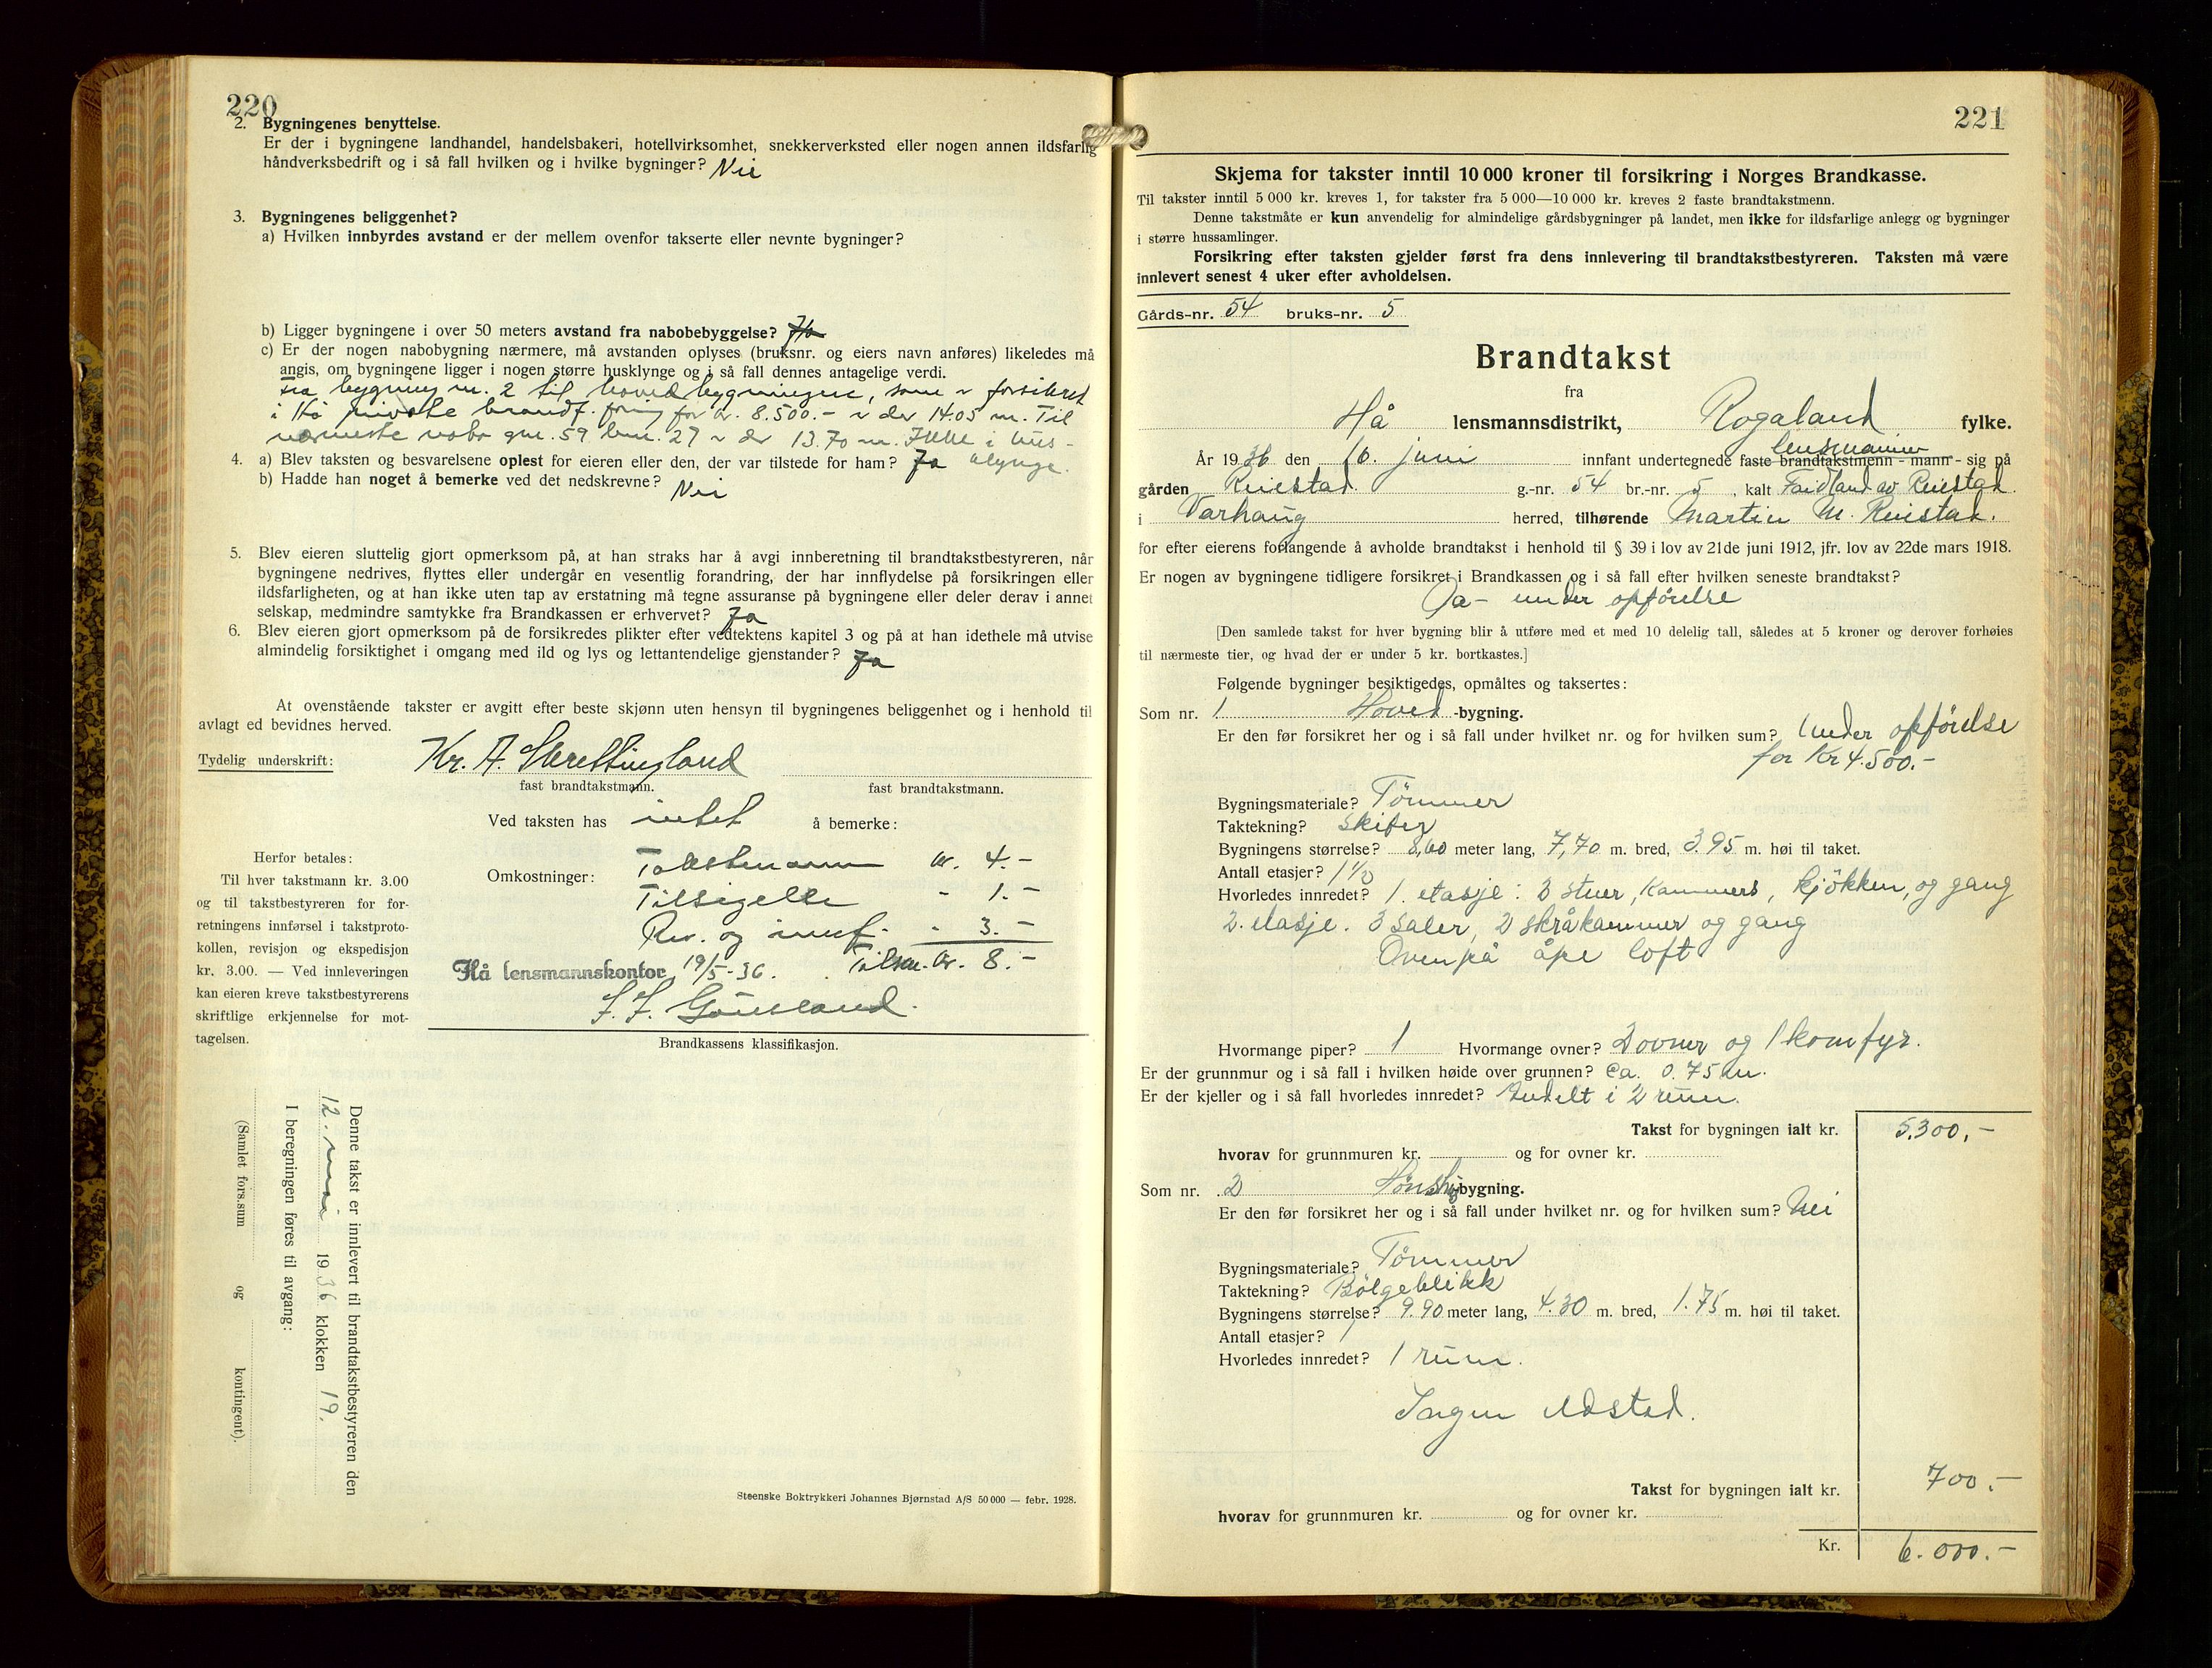 220
2. Bygningenes benyttelse.
Er der i bygningene landhandel, handelsbakeri, hotellvirksomhet, snekkerverksted eller nogen annen ildsfarlig
håndverksbedrift og i så fall hvilken og i hvilke bygninger? Nei
3. Bygningenes beliggenhet?
a) Hvilken innbyrdes avstand er der mellem ovenfor takserte eller nevnte bygninger?
b) Ligger bygningene i over 50 meters avstand fra nabobebyggelse? Ja
c) Er der nogen nabobygning nærmere, må avstanden oplyses (bruksnr. og eiers navn anføres) likeledes må
angis, om bygningene ligger i nogen større husklynge og i så fall dennes antagelige verdi.
Fra bygning nr. 2 til hovedbygningen, som er forsikret
i Hå private brandf. foring for kr. 8.500.- er der 14.05 m. Til
nærmeste nabo gnr. 59 bnr. 27 er der 13.70 m. Ikke i hus-
klynge.
4. a) Blev taksten og besvarelsene oplest for eieren eller den, der var tilstede for ham? Ja
b) Hadde han noget å bemerke ved det nedskrevne? Nei
5. Blev eieren sluttelig gjort opmerksom på, at han straks har å avgi innberetning til brandtakstbestyreren, når
bygningene nedrives, flyttes eller undergår en vesentlig forandring, der har innflydelse på forsikringen eller
ildsfarligheten, og at han ikke uten tap av erstatning må tegne assuranse på bygningene eller deler derav i annet
selskap, medmindre samtykke fra Brandkassen er erhvervet? Ja
6. Blev eieren gjort opmerksom på de forsikredes plikter efter vedtektens kapitel 3 og på at han idethele må utvise
almindelig forsiktighet i omgang med ild og lys og lettantendelige gjenstander? Ja
At ovenstående takster er avgitt efter beste skjønn uten hensyn til bygningenes beliggenhet og i henhold til
avlagt ed bevidnes herved.
Tydelig underskrift: Kr. A. Skrettingland
fast brandtakstmann. fast brandtakstmann.
Ved taksten has intet å bemerke:
Herfor betales:
Til hver takstmann kr. 3.00
og til takstbestyreren for for-
retningens innførsel i takstproto-
kollen, revisjon og ekspedisjon
kr. 3.00. — Ved innleveringen
kan eieren kreve takstbestyrerens
skriftlige erkjennelse for mot-
tagelsen.
Omkostninger: Takstmann kr. 4.-
Tilsigelse - 1.-
Rev. og innf. - 3.-
Hå lensmannskontor, 19/5-36. Tilsm. kr. 8.-
Brandkassens klassifikasjon.
Denne takst er innlevert til brandtakstbestyreren den
12. mai 1936 klokken 19.
I beregningen føres til avgang:
(Samlet fors.sum og kontingent).
Steenske Boktrykkeri Johannes Bjørnstad A/S 50 000 — febr. 1928.
221
Skjema for takster inntil 10 000 kroner til forsikring i Norges Brandkasse.
Til takster inntil 5 000 kr. kreves 1, for takster fra 5 000—10 000 kr. kreves 2 faste brandtakstmenn.
Denne takstmåte er kun anvendelig for almindelige gårdsbygninger på landet, men ikke for ildsfarlige anlegg og bygninger
i større hussamlinger.
Forsikring efter taksten gjelder først fra dens innlevering til brandtakstbestyreren. Taksten må være
innlevert senest 4 uker efter avholdelsen.
Gårds-nr. 54 bruks-nr. 5
Brandtakst
fra
Hå lensmannsdistrikt, Rogaland fylke.
lensmannen
År 1936 den 16. juni innfant undertegnede faste brandtakstmenn - mann - sig på
gården Reiestad g.-nr. 54 br.-nr. 5, kalt av Reiestad
i Varhaug herred, tilhørende Martin M. Reiestad.
for efter eierens forlangende å avholde brandtakst i henhold til § 39 i lov av 21de juni 1912, jfr. lov av 22de mars 1918.
Er nogen av bygningene tidligere forsikret i Brandkassen og i så fall efter hvilken seneste brandtakst?
Ja - under opførelse
[Den samlede takst for hver bygning blir å utføre med et med 10 delelig tall, således at 5 kroner og derover forhøies
til nærmeste tier, og hvad der er under 5 kr. bortkastes.]
Følgende bygninger besiktigedes, opmåltes og taksertes:
Som nr. 1 Hoved-bygning.
Er den før forsikret her og i så fall under hvilket nr. og for hvilken sum? Under opførelse
for Kr 4.500.-
Bygningsmateriale? Tømmer
Taktekning? Skifer
Bygningens størrelse? 8,60 meter lang, 7,70 m. bred, 3.95 m. høi til taket.
Antall etasjer? 1 1/2
Hvorledes innredet? 1. etasje: 2 stuer, kammers, kjøkken, og gang
2. etasje. 3 saler, 2 skråkammer og gang
Ovenpå åpe loft
Hvormange piper? 1 Hvormange ovner? 2 ovner og 1 komfyr.
Er der grunnmur og i så fall i hvilken høide over grunnen? Ca. 0.75 m.
Er der kjeller og i så fall hvorledes innredet? Indelt i 2 rum.
Takst for bygningen ialt kr. 5.300.-
hvorav for grunnmuren kr. og for ovner kr.
Som nr. 2 Hønsehusbygning.
Er den før forsikret her og i så fall under hvilket nr. og for hvilken sum? Nei
Bygningsmateriale? Tømmer
Taktekning? Bølgeblikk
Bygningens størrelse? 9.90 meter lang, 4.30 m. bred, 1.75 m. høi til taket.
Antall etasjer? 1
Hvorledes innredet? 1 rum.
Ingen ildsted.
Takst for bygningen ialt kr. 700.-
hvorav for grunnmuren kr. og for ovner kr.
Kr. 6.000.-